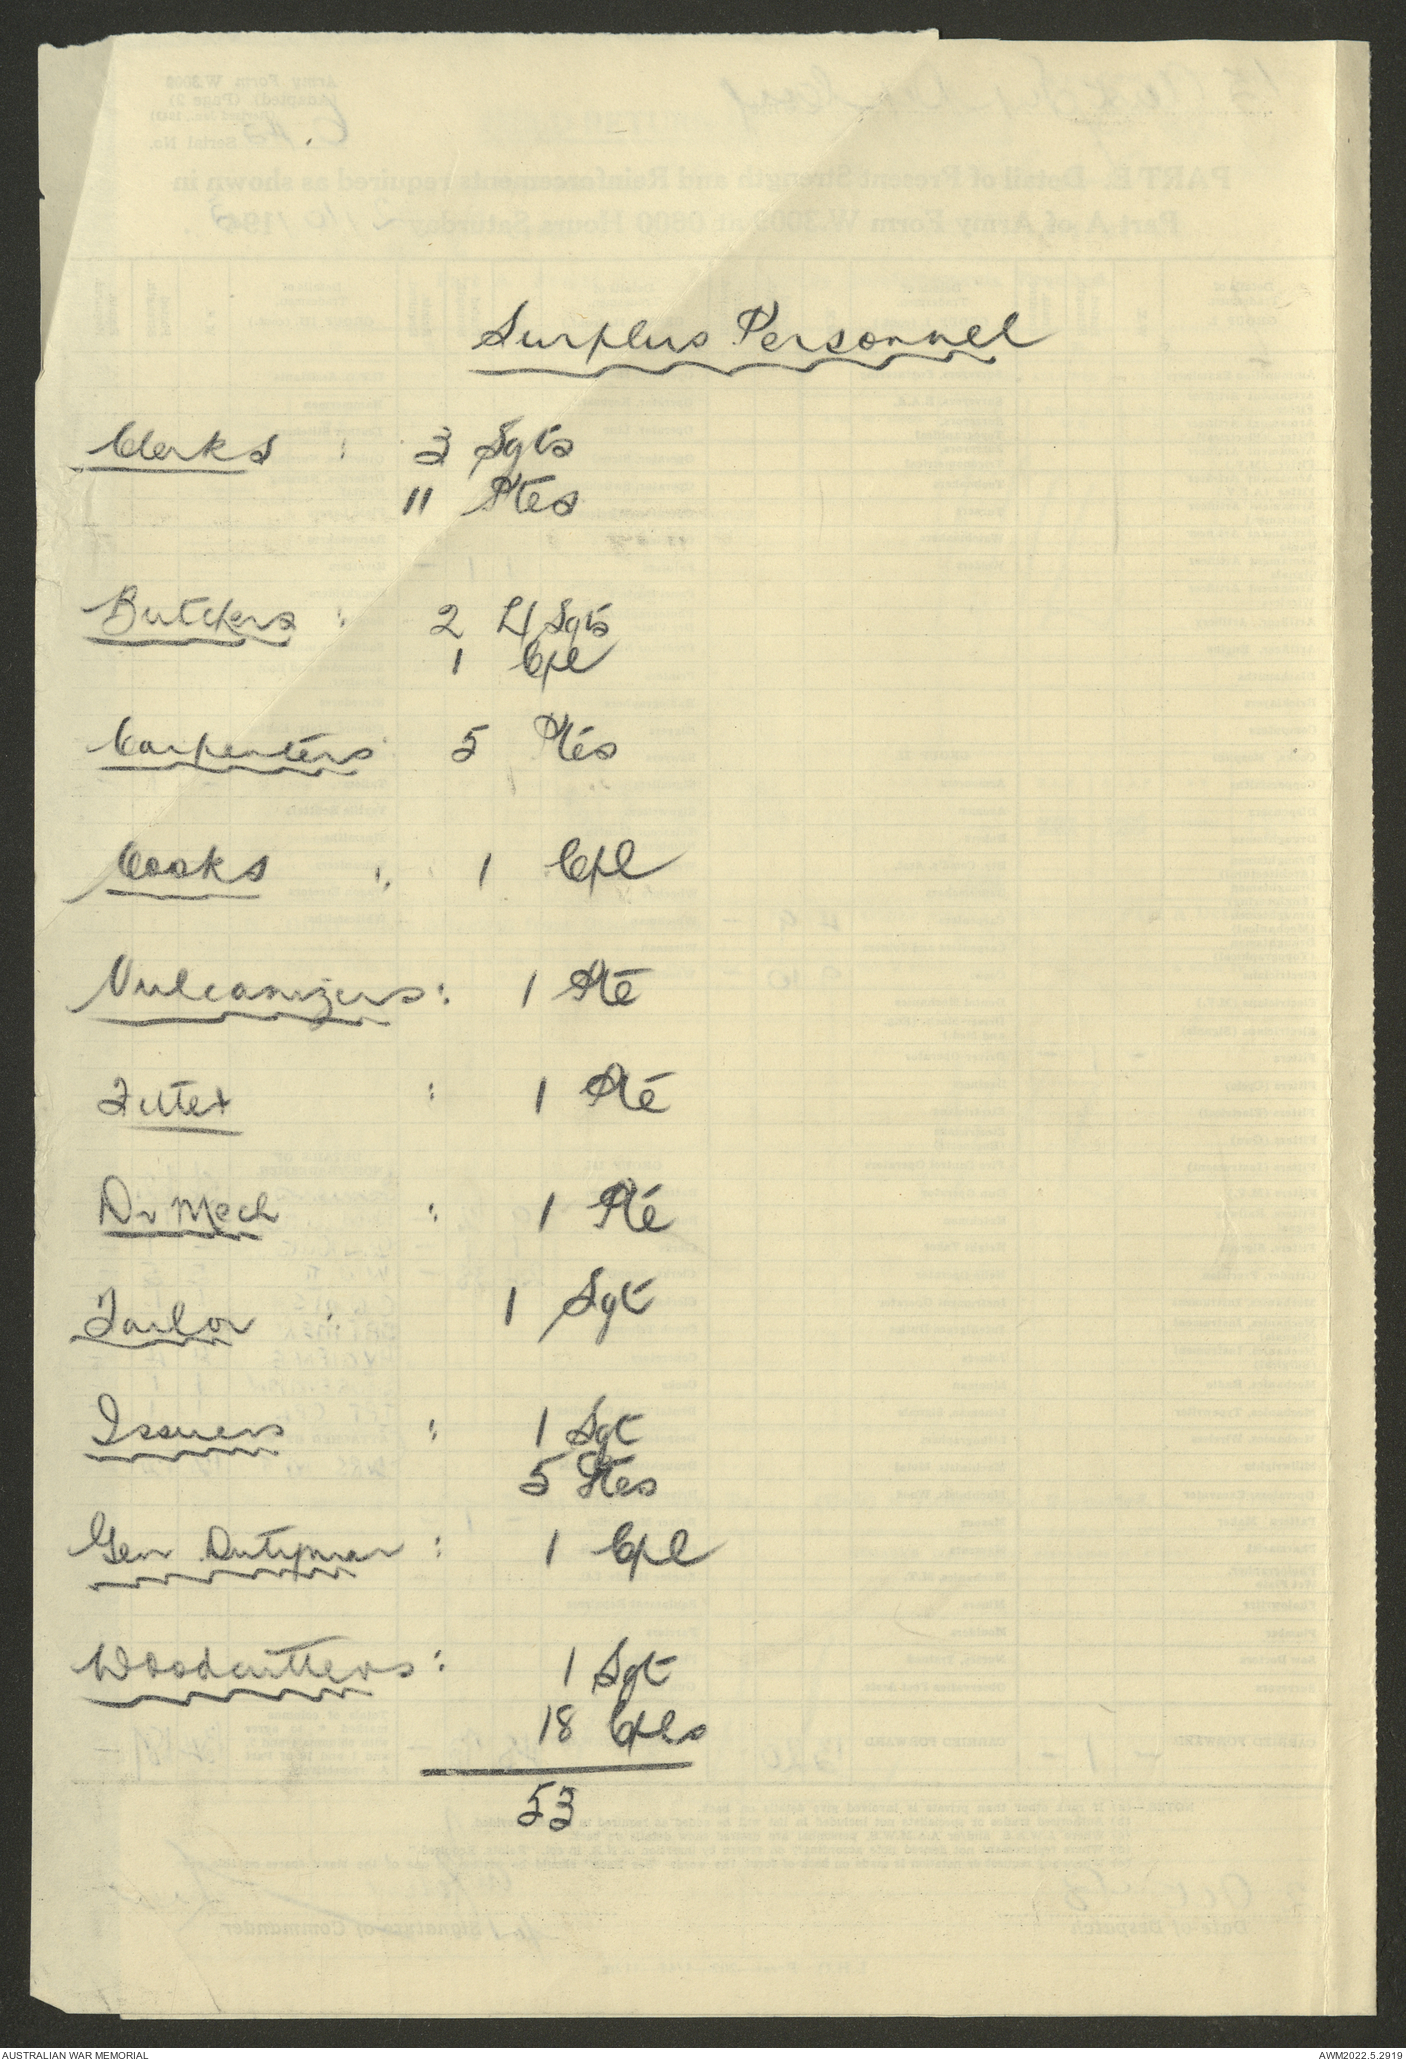 Surplus Personnel
Clerks : 3 Sgts
11 Ptes
Butchers : 2 L/Sgts
1 Cpl
Carpenters 5 Ptes
Cooks : 1 Cpl
Vulcanizers : 1 Pte
Fitter : 1 Pte
Dr Mech : 1 Pte
Tailor : 1 Sgt
Issuers : 1 Sgt
5 Ptes
Gen Dutyman : 1 Cpl
Woodcutters : 1 Sgt
18 Cpls
53
AUSTRALIAN WAR MEMORIAL
AWM2022.5.2919